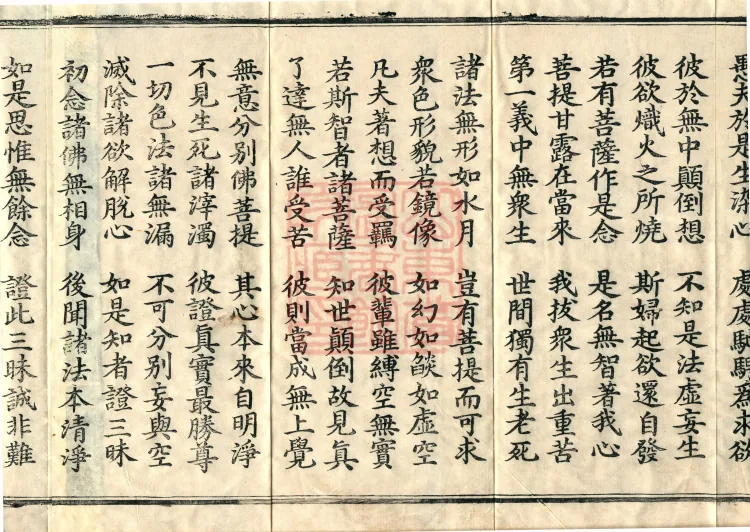 愚夫於是生染心 處處馳騁為求欲
彼於無中顛倒想 不知是法虛妄生
彼欲熾火之所燒 斯婦起欲還自發
若有菩薩作是念 是名無智著我心
菩提甘露在當來 我拔衆生出重苦
第一義中無衆生 世間獨有生老死
諸法無形如水月 豈有菩提而可求
衆色形貌若鏡像 如幻如燄如虛空
凡夫著想而受羈 彼輩雖縛空無實
若斯智者諸菩薩 知世顛倒故見眞
了達無人誰受苦 彼則當成無上覺
無意分別佛菩提 其心本來自明淨
不見生死諸滓濁 彼證眞實最勝尊
一切色法諸無漏 不可分別妄與空
滅除諸欲解脫心 如是知者證三昧
初念諸佛無相身 後聞諸法本清淨
如是思惟無餘念 證此三昧誠非難